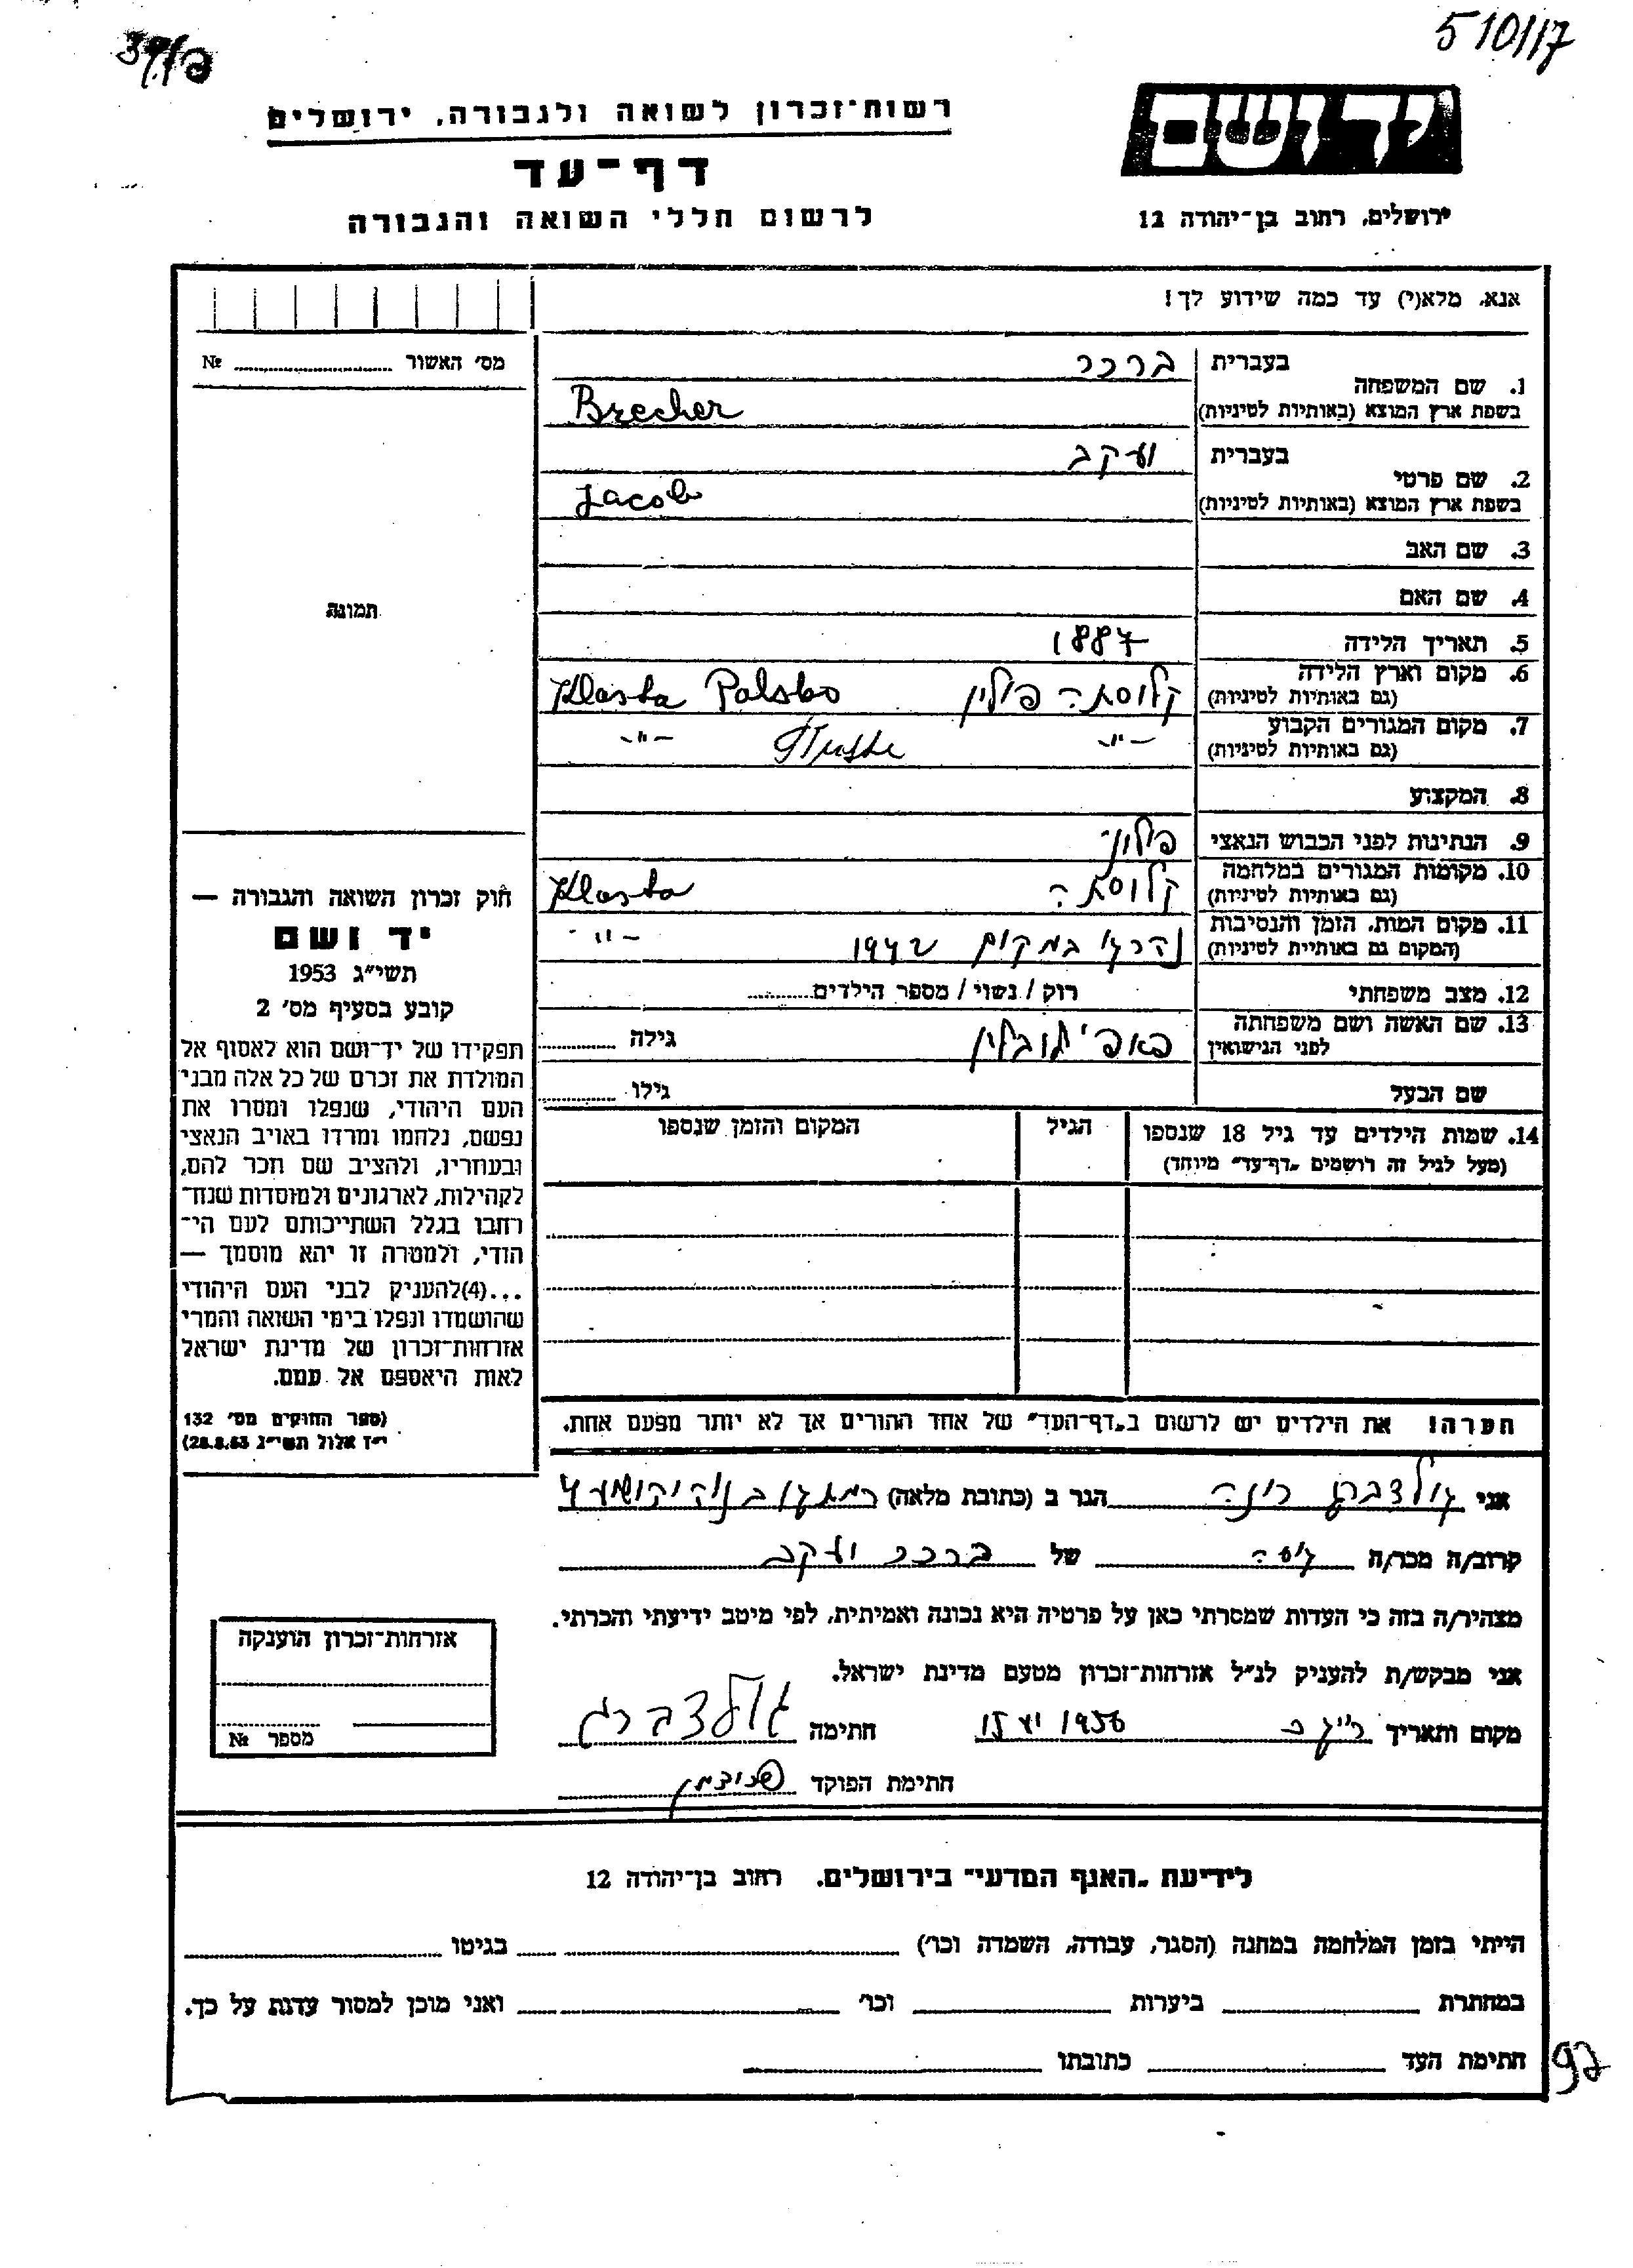 510117
רשות־זכרון לשואה ולגבורה, ירושלים
יד ושם
דף־עד
לרשום חללי השואה והגבורה
ירושלים, רחוב בן־יהודה 12
אנא, מלא(י) עד כמה שידוע לך!
מס׳ האשור № ........
בעברית ברכר
1. שם המשפחה
בשפת ארץ המוצא (באותיות לטיניות) Brecher
בעברית יעקב
2. שם פרטי
בשפת ארץ המוצא (באותיות לטיניות) Jacob
3. שם האב
4. שם האם
תמונה
5. תאריך הלידה 1887
6. מקום וארץ הלידה
(גם באותיות לטיניות) פולין Polsko
7. מקום המגורים הקבוע
(גם באותיות לטיניות) -"- -"-
8. המקצוע
9. הנתינות לפני הכבוש הנאצי
10. מקומות המגורים במלחמה
(גם באותיות לטיניות)
11. מקום המות, הזמן והנסיבות
(המקום גם באותיות לטיניות) במקום 1942 -"-
12. מצב משפחתי רוק / נשוי / מספר הילדים........
13. שם האשה ושם משפחתה
לפני הנישואין גילה ........
שם הבעל גילו ........
14. שמות הילדים עד גיל 18 שנספו
(מעל לגיל זה רושמים „דף־עד" מיוחד)
הגיל
המקום והזמן שנספו
חוק זכרון השואה והגבורה —
יד ושם
תשי״ג 1953
קובע בסעיף מס׳ 2
תפקידו של יד־ושם הוא לאסוף אל
המולדת את זכרם של כל אלה מבני
העם היהודי, שנפלו ומסרו את
נפשם, נלחמו ומרדו באויב הנאצי
ובעוזריו, ולהציב שם וזכר להם,
לקהילות, לארגונים ולמוסדות שנח־
רחבו בגלל השתייכותם לעם הי־
הודי, ולמטרה זו יהא מוסמך —
...(4)להעניק לבני העם היהודי
שהושמדו ונפלו בימי השואה והמרי
אזרחות־זכרון של מדינת ישראל
לאות היאספם אל עמם.
(ספר החוקים מס׳ 132
י״ז אלול תשי״ג 28.8.53)
הערה! את הילדים יש לרשום ב„דף־העד" של אחד ההורים אך לא יותר מפעם אחת.
אני גולדברג הגר ב (כתובת מלאה)
קרוב/ה מכר/ה גיסה של ברכר יעקב
מצהיר/ה בזה כי העדות שמסרתי כאן על פרטיה היא נכונה ואמיתית, לפי מיטב ידיעתי והכרתי.
אני מבקש/ת להעניק לנ״ל אזרחות־זכרון מטעם מדינת ישראל.
מקום ותאריך 15 VI 1956 חתימה גולדברג
חתימת הפוקד
אזרחות־זכרון הוענקה
מספר №
לידיעת „האגף המדעי" בירושלים, רחוב בן־יהודה 12
הייתי בזמן המלחמה במחנה (הסגר, עבודה, השמדה וכו׳) ........ בגיטו ........
במחתרת ........ ביערות ........ וכו׳ ........ ואני מוכן למסור עדות על כך.
חתימת העד ........ כתובתו ........
97